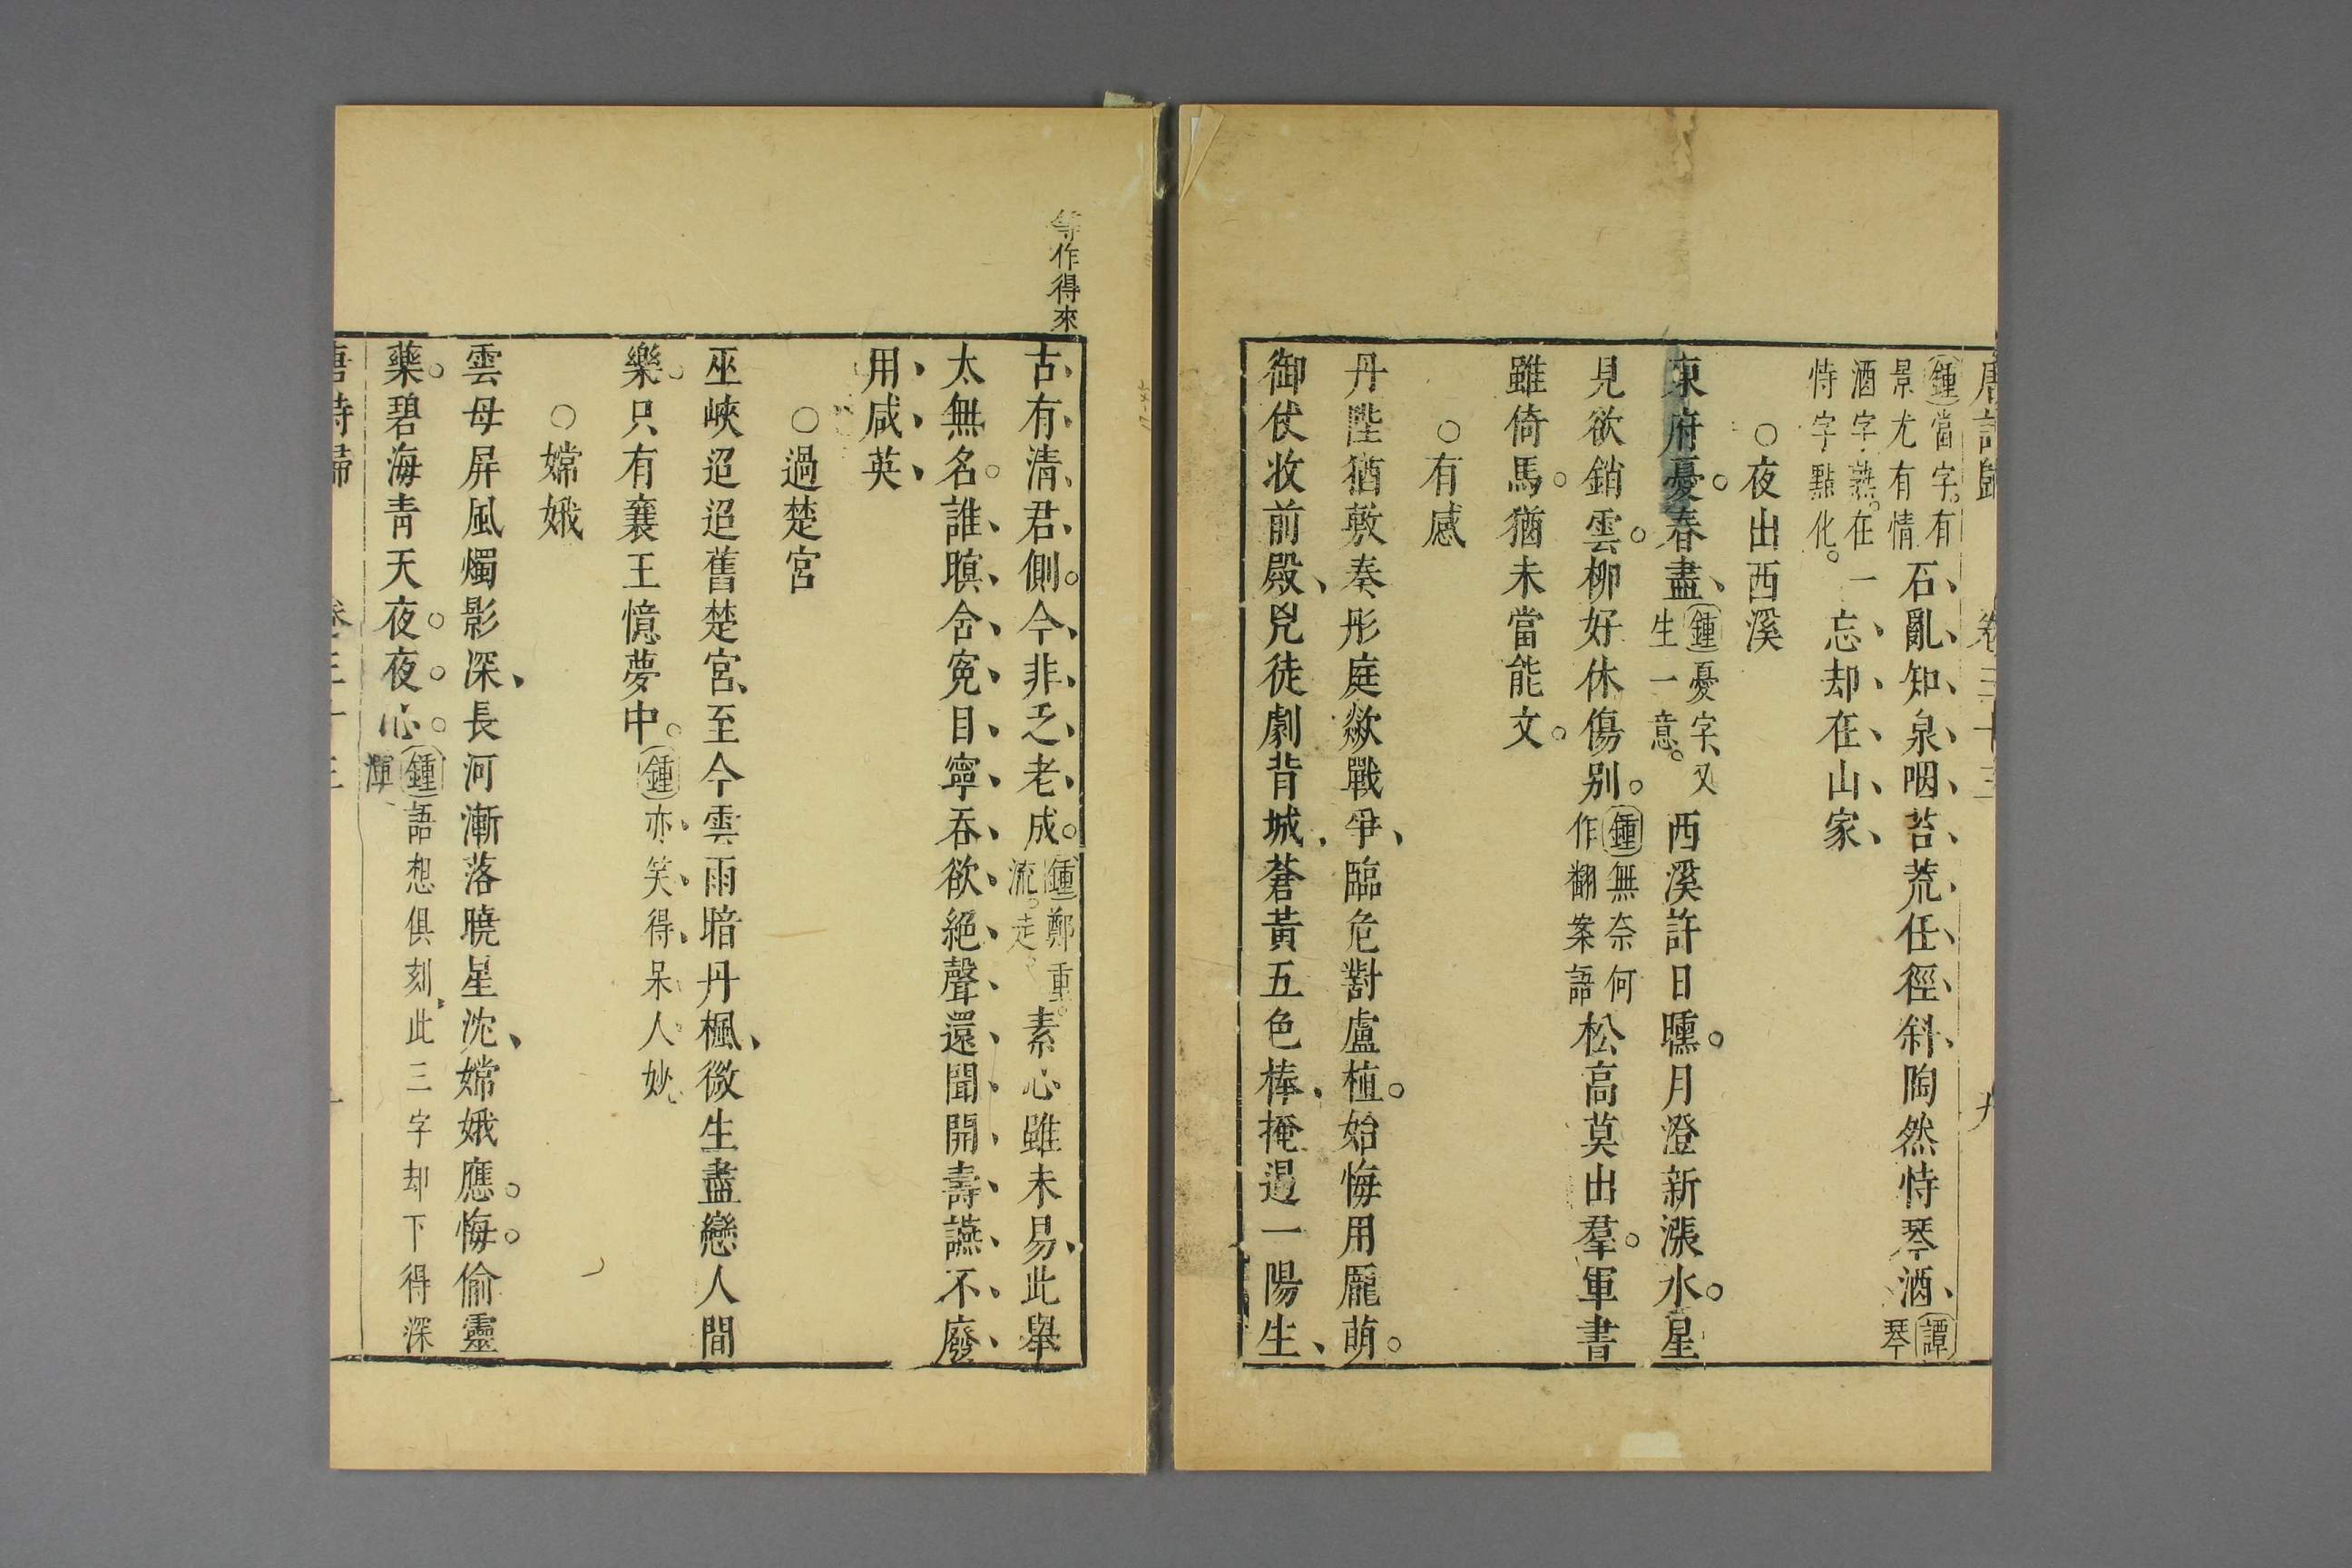 唐詩歸 卷三十三 九
鍾當字有景尤有情石亂知泉咽苔荒任徑斜陶然恃琴酒譚琴
酒字熟在恃字點化一忘却在山家
○夜出西溪
東府憂春盡鍾憂字又生一意西溪許日曛月澄新漲水星
見欲銷雲柳好休傷别鍾無奈何作翻案語松高莫出羣軍書
雖倚馬猶未當能文
○有感
丹陛猶敷奏彤庭歘戰爭臨危對盧植始悔用龎萌
御仗收前殿兇徒劇背城蒼黄五色棒掩遏一陽生
等作得來
古有清君側今非乏老成鍾鄭重流走素心雖未易此舉
太無名誰瞑含寃目寧吞欲絕聲還聞開壽讌不廢
用咸英
○過楚宮
巫峽迢迢舊楚宮至今雲雨暗丹楓微生盡戀人間
樂只有襄王憶夢中鍾亦笑得呆人妙
○嫦娥
雲母屏風燭影深長河漸落曉星沈嫦娥應悔偷靈
藥碧海青天夜夜心鍾語想俱刻此三字却下得深渾
唐詩歸 卷三十三